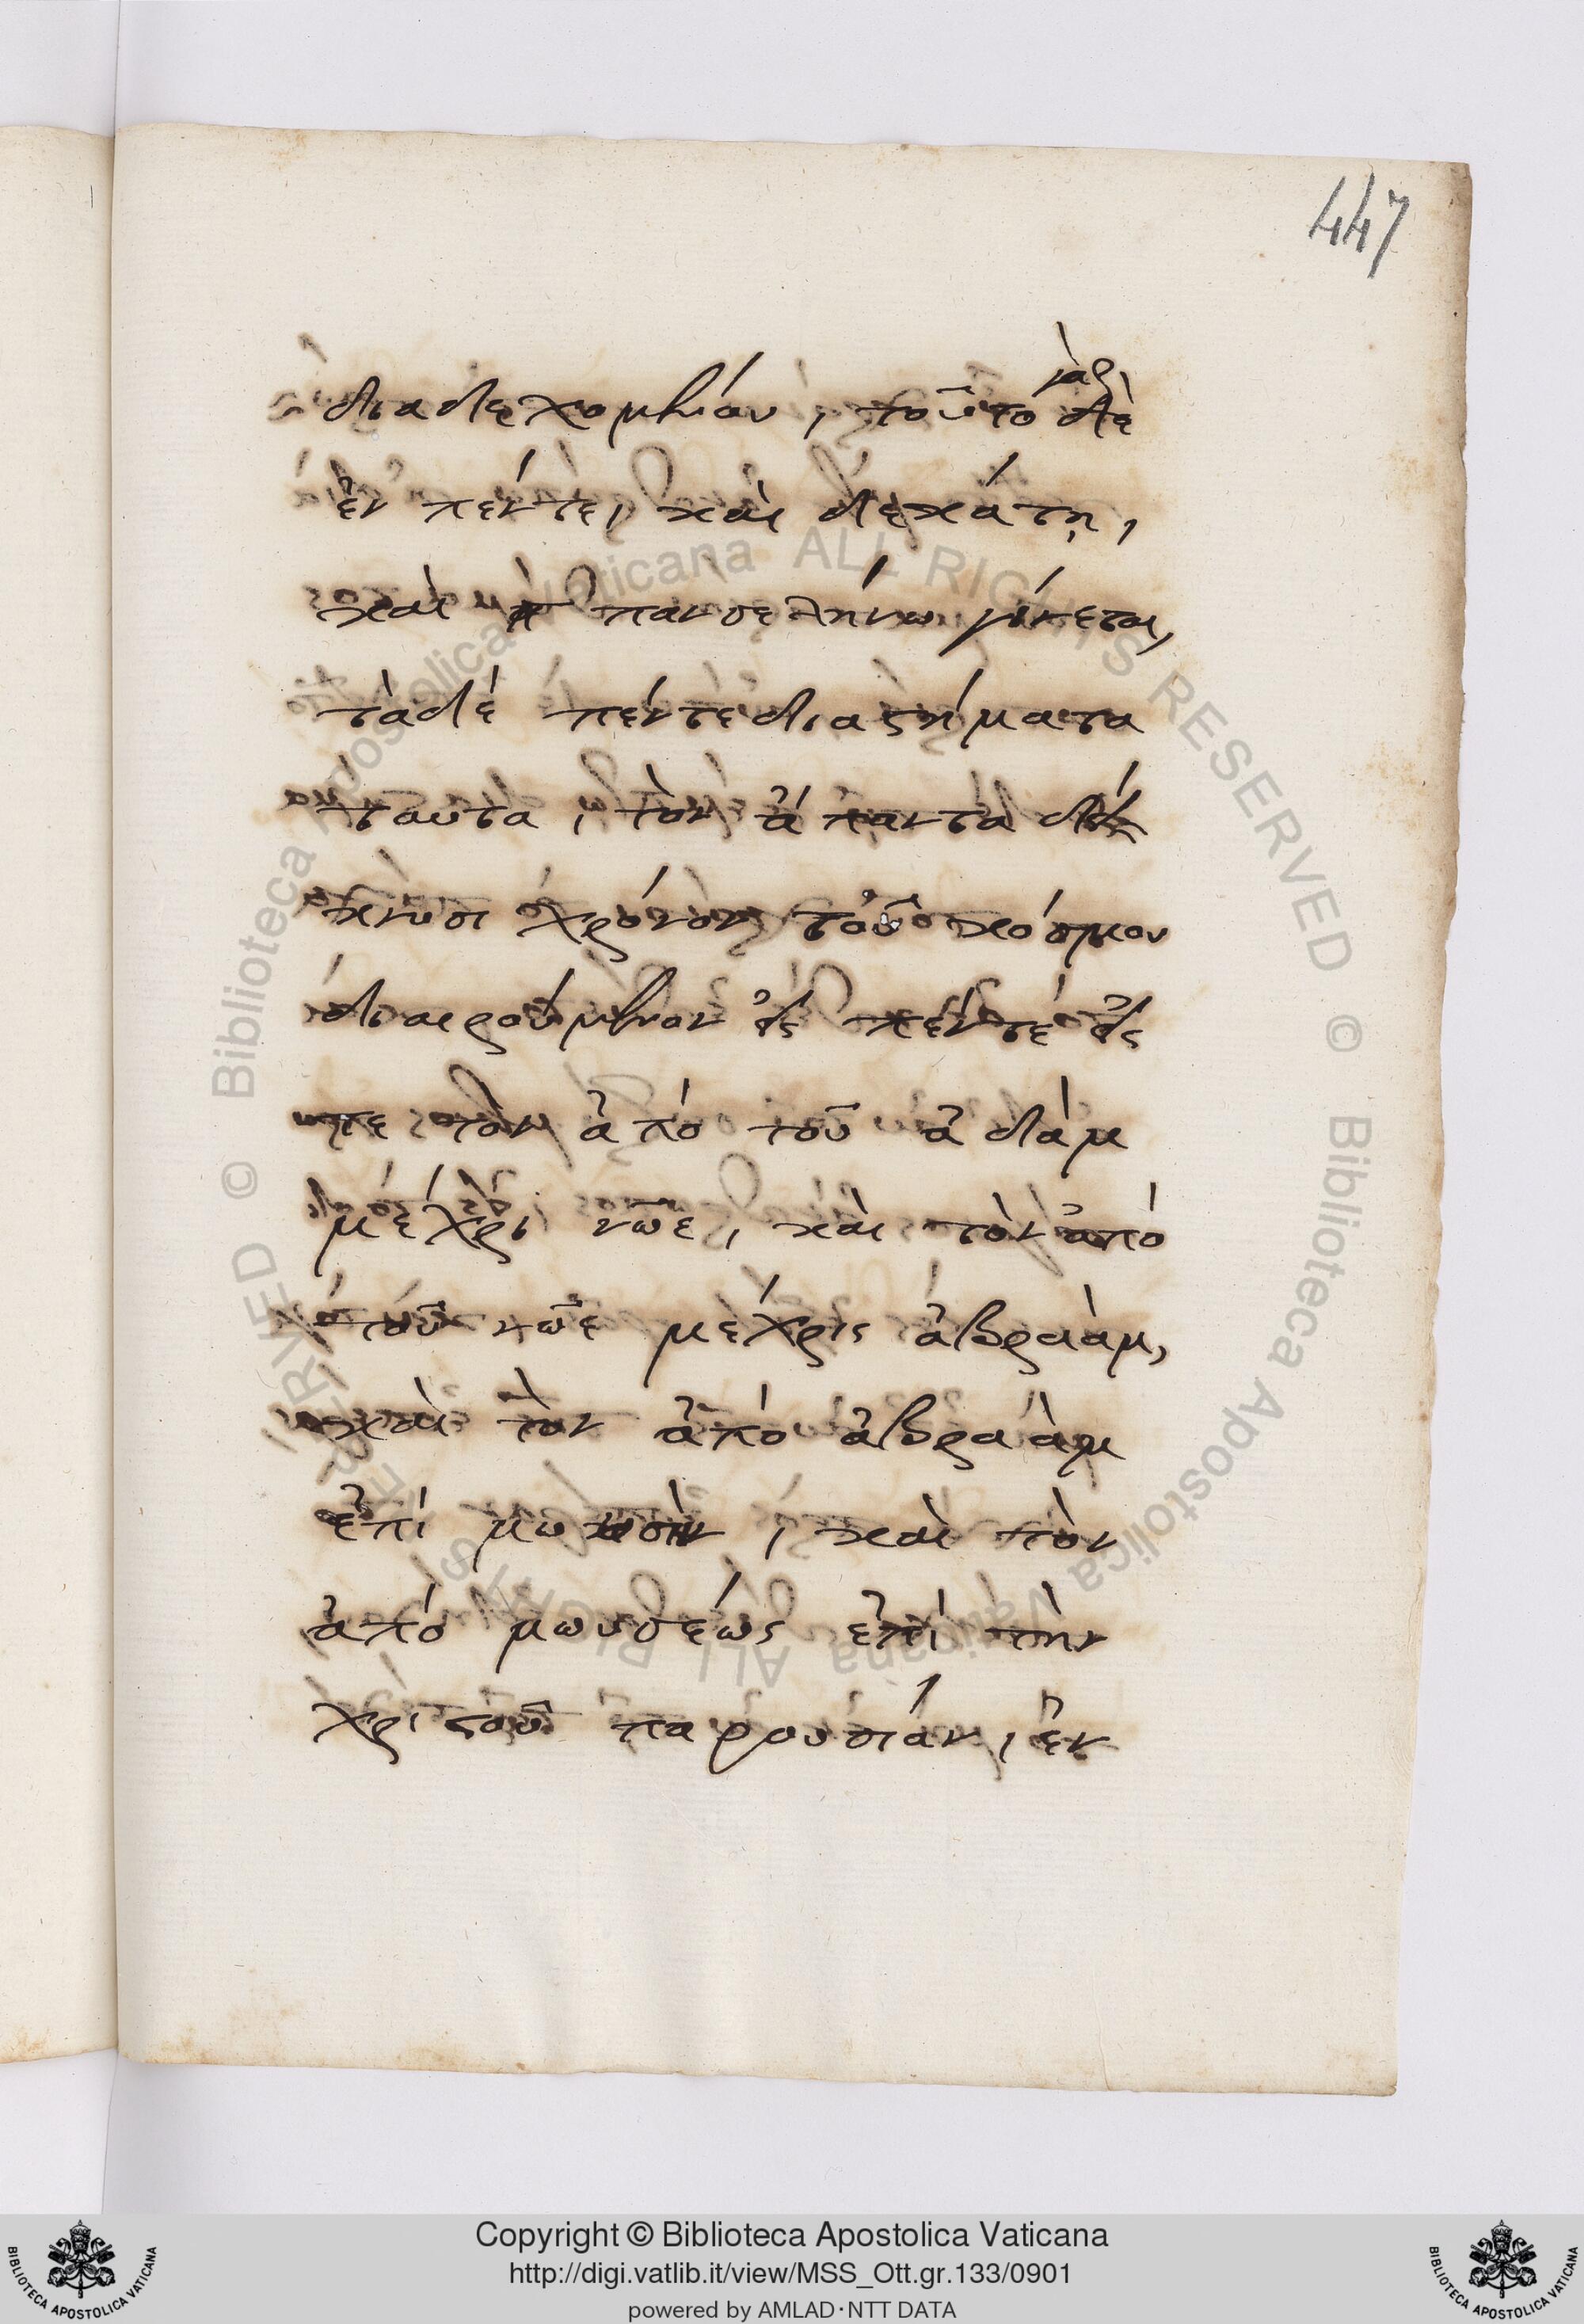 447
γὰρ
διαδεχομένου, τοῦτο δὲ
ἐν πέντε, καὶ δεκάτῃ,
καὶ πανσελήνω γίνεται,
τὰ δὲ πέντε διαστήματα
ταῦτα, τὸν ἅπαντα
κνυσι χρόνον τοῦ κόσμου
διαιρούμενον εἰς πέντε εἰς
τε τὸν ἀπὸ τοῦ ἀδὰμ
μέχρι νῶε, καὶ τὸν ἀπὸ
τοῦ νῶε μέχρις ἀβραὰμ,
καὶ τὸν ἀπὸ ἀβραὰμ
ἐπὶ μωυσὴν, καὶ τὸν
ἀπὸ μωυσέως ἐπὶ τὴν
χριστοῦ παρουσίαν, ἐν
© Biblioteca Apostolica Vaticana ALL RIGHTS RESERVED
© Biblioteca Apostolica Vaticana ALL RIGHTS RESERVED
Copyright © Biblioteca Apostolica Vaticana
http://digi.vatlib.it/view/MSS_Ott.gr.133/0901
powered by AMLAD·NTT DATA
BIBLIOTECA APOSTOLICA VATICANA
BIBLIOTECA APOSTOLICA VATICANA